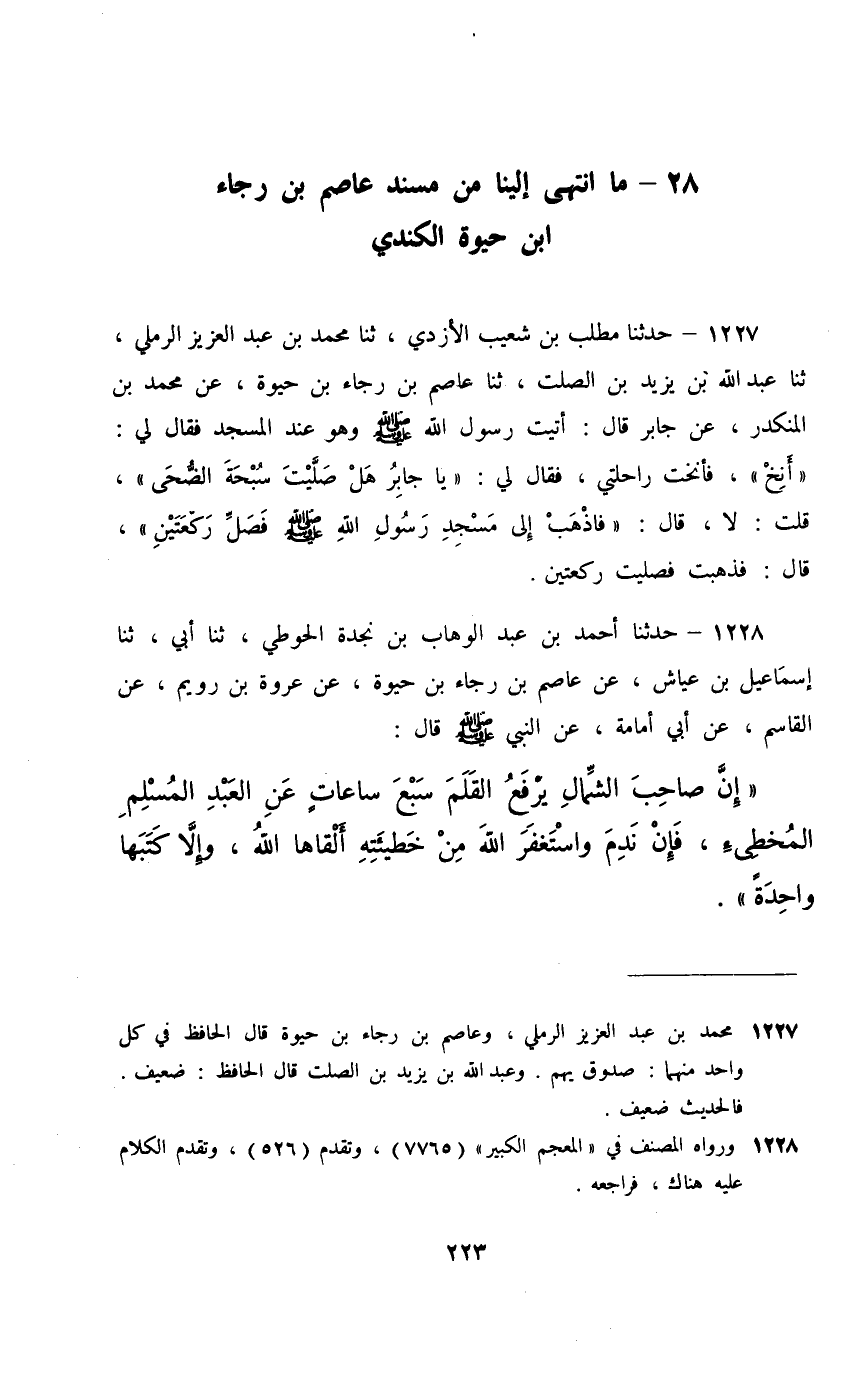 ٢٨ – ما انتهى إلينا من مسند عاصم بن رجاء
ابن حيوة الكندي
١٢٢٧ – حدثنا مطلب بن شعيب الأزدي ، ثنا محمد بن عبد العزيز الرملي ،
ثنا عبد الله بن يزيد بن الصلت ، ثنا عاصم بن رجاء بن حيوة ، عن محمد بن
المنكدر ، عن جابر قال : أتيت رسول الله ﷺ وهو عند المسجد فقال لي :
«أَنِخْ» ، فأنخت راحلتي ، فقال لي : «يا جابِرُ هَلْ صَلَّيْتَ سُبْحَةَ الضُّحَى» ،
قلت : لا ، قال : «فاذْهَبْ إِلى مَسْجِدِ رَسُولِ اللهِ ﷺ فَصَلِّ رَكْعَتَيْنِ» ،
قال : فذهبت فصليت ركعتين .
١٢٢٨ – حدثنا أحمد بن عبد الوهاب بن نجدة الحوطي ، ثنا أبي ، ثنا
إسمَاعيل بن عياش ، عن عاصم بن رجاء بن حيوة ، عن عروة بن رويم ، عن
القاسم ، عن أبي أمامة ، عن النبي ﷺ قال :
« إِنَّ صاحِبَ الشِّمالِ يَرْفَعُ القَلَمَ سَبْعَ ساعاتٍ عَنِ العَبْدِ المُسْلِمِ
المُخطِىءِ ، فَإِنْ نَدِمَ واسْتَغفَرَ اللهَ مِنْ خَطيئَتِهِ أَلْقاها اللهُ ، وإِلَّا كَتَبَها
واحِدَةً» .
١٢٢٧ محمد بن عبد العزيز الرملي ، وعاصم بن رجاء بن حيوة قال الحافظ في كل
واحد منهما : صدوق يهم . وعبد الله بن يزيد بن الصلت قال الحافظ : ضعيف .
فالحديث ضعيف .
١٢٢٨ ورواه المصنف في «المعجم الكبير» (٧٧٦٥) ، وتقدم (٥٢٦) ، وتقدم الكلام
عليه هناك ، فراجعه .
٢٢٣